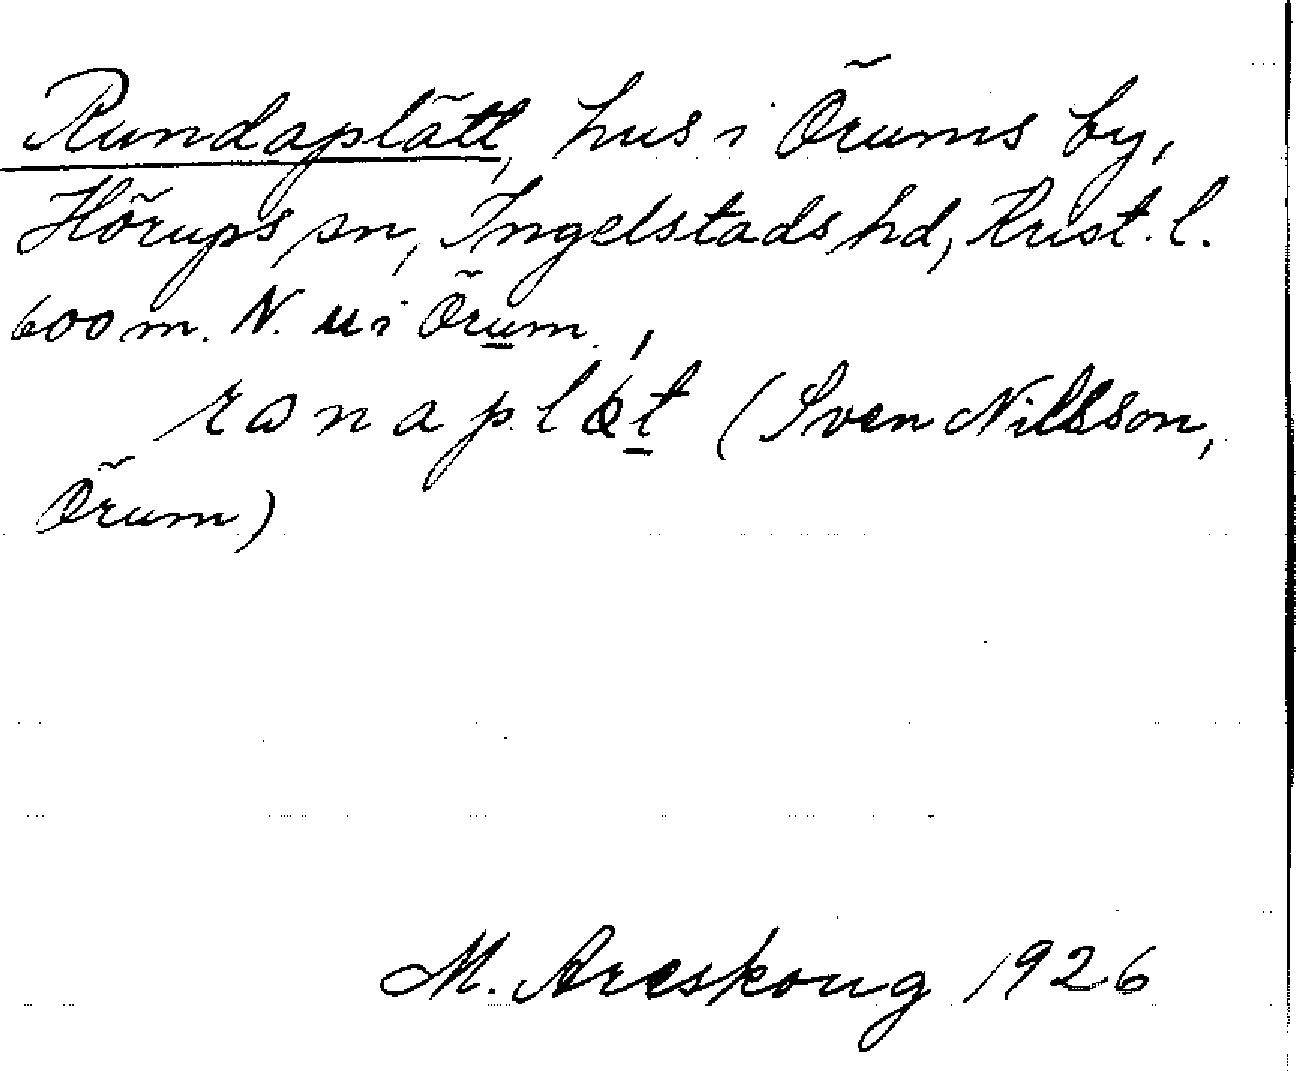 Rundaplätt, hus i Örums by,
Hörups sn, Ingelstads hd, Krist. l.
600 m. N. u i Örum,
(Sven Nilsson,
Örum)
M. Areskoug 1926